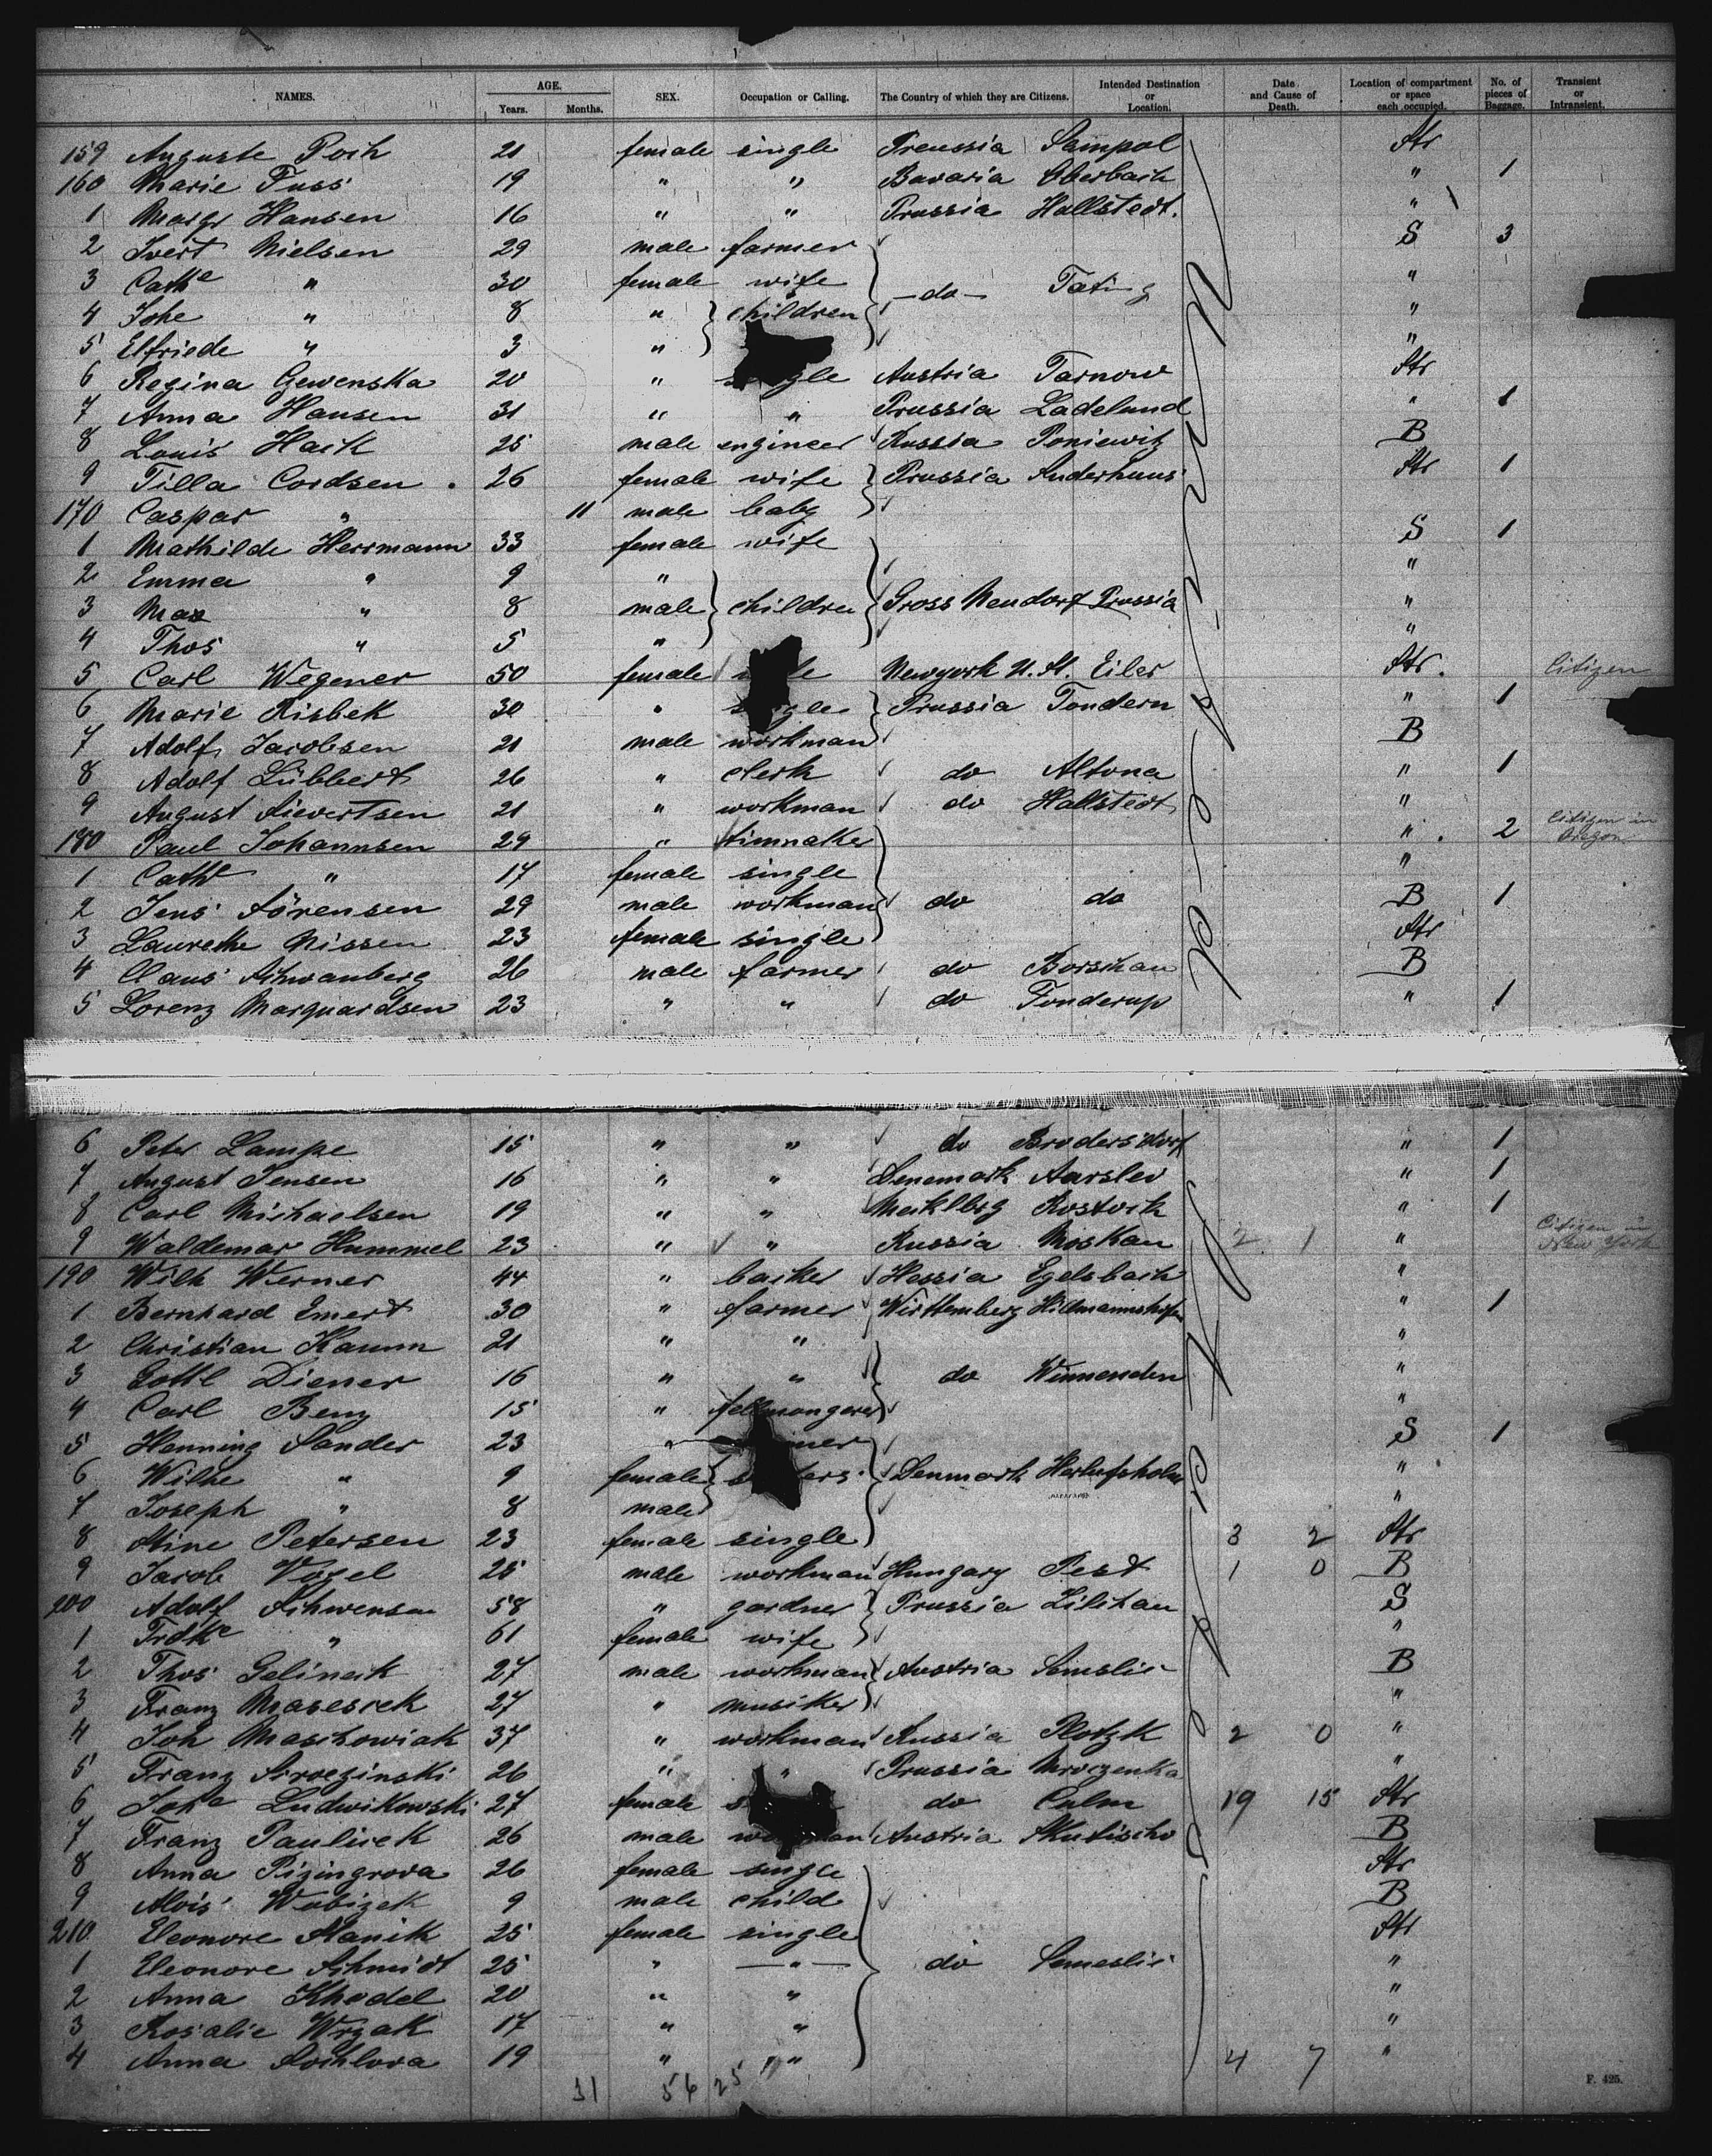 NAMES. AGE. Years. Months. SEX. Occupation or Calling. The Country of which they are Citizens. Intended Destination or Location. Date and Cause of Death. Location of compartment or space each occupied. No. of pieces of Baggage. Transient or Intransient.
159 Auguste Poch 21 female single Preussia Sampol Str
160 Marie Fuss 19 " " Bavaria Oberbach " 1
1 Margr Hansen 16 " " Prussia Hallstedt. "
2 Ivert Nielsen 29 male farmer S 3
3 Cathe " 30 female wife - do - Tating "
4 Johe " 8 " children "
5 Elfriede " 3 " "
6 Regina Gewenska 20 " Austria Tarnow Str
7 Anna Hansen 31 " " Prussia Ladelund " 1
8 Louis Hack 25 male engineer Russia Poniewitz B
9 Tilla Cordsen 26 female wife Prussia Suderhuus Str 1
170 Caspar " 11 male baby
1 Mathilde Herrmann 33 female wife S 1
2 Emma " 9 " "
3 Max " 8 male children Gross Neudorf Prussia "
4 Thos " 5 " "
5 Carl Wegener 50 female Newyork U. St. Eiler Str. Citizen
6 Marie Risbek 30 " single Prussia Tondern " 1
7 Adolf Jacobsen 21 male workman B
8 Adolf Lübbert 26 " clerk do Altona " 1
9 August Sievertsen 21 " workman do Hallstedt "
180 Paul Johannsen 29 " " 2 Citizen in Oregon
1 Cathe " 17 female single "
2 Jens Sörensen 29 male workman do do B 1
3 Laurethe Nissen 23 female single Str
4 Claus Schwanberg 26 male farmer do Borschau B
5 Lorenz Marquardsen 23 " " do Tonderup " 1
6 Peter Lampe 15 " " do Brodersdorf " 1
7 August Jensen 16 " " Denemark Aarslev " 1
8 Carl Michaelsen 19 " " Mecklbg Rostock " 1
9 Waldemar Hummel 23 " " Russia Moskau 2 1 " Citizen in New York
190 Wilh Werner 44 " backer Hessia Egelsbach "
1 Bernhard Emert 30 " farmer Württemberg " 1
2 Christian Kamm 21 " " "
3 Gottl Diener 16 " " do Winnenden "
4 Carl Benz 15 " fellmongerer "
5 Henning Sander 23 " S 1
6 Wilhe " 9 female Denmark Herlufsholm "
7 Joseph " 8 male "
8 Stine Petersen 23 female single 3 2 Str
9 Jacob Vogel 25 male workman Hungary Pest 1 0 B
200 Adolf Schwensen 58 " gardner Prussia Lilihau S
1 Frdke " 61 female wife "
2 Thos Gelineck 27 male workman Austria B
3 Franz Maresrek 27 " musiker "
4 Joh Maschowiak 37 " workman Russia Plotzk 2 0 "
5 Franz Sroczinski 26 " " Prussia Mroczenka "
6 Johe Ludwikowski 27 female do Culm 19 15 Str
7 Franz Paulicek 26 male workman Austria Skutischo B
8 Anna Pizingrova 26 female single Str
9 Alois Wobizek 9 male child B
210 Eleonore Stanik 25 female single Str
1 Eleonore Schmidt 25 " " do "
2 Anna Khodel 20 " " "
3 Rosalie Wrzak 17 " " "
4 Anna Sochlova 19 " " 4 7 "
31 56 25
F. 425.